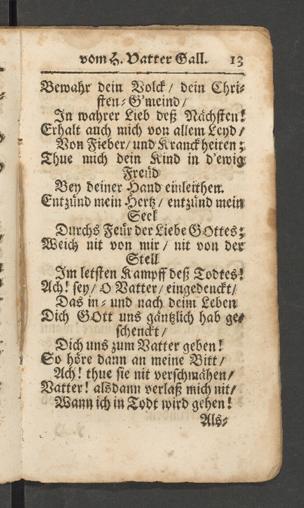 vom H. Vatter Gall. 13
Bewahr dein Volck / dein Chri-
sten-G'meind /
In wahrer Lieb deß Nächsten!
Erhalt auch mich von allem Leyd /
Von Fieber / und Kranckheiten;
Thue mich dein Kind in d'ewig
Freüd
Bey deiner Hand einleithen.
Entzünd mein Hertz / entzünd mein
Seel
Durchs Feür der Liebe GOttes;
Weich nit von mir / nit von der
Stell
Im letsten Kampff deß Todtes!
Ach! sey / O Vatter / eingedenckt /
Das in- und nach dem Leben
Dich GOtt uns gäntzlich hab ge-
schenckt /
Dich uns zum Vatter geben!
So höre dann an meine Bitt /
Ach! thue sie nit verschmähen /
Vatter! alsdann verlaß mich nit /
Wann ich in Todt wird gehen!
Als-